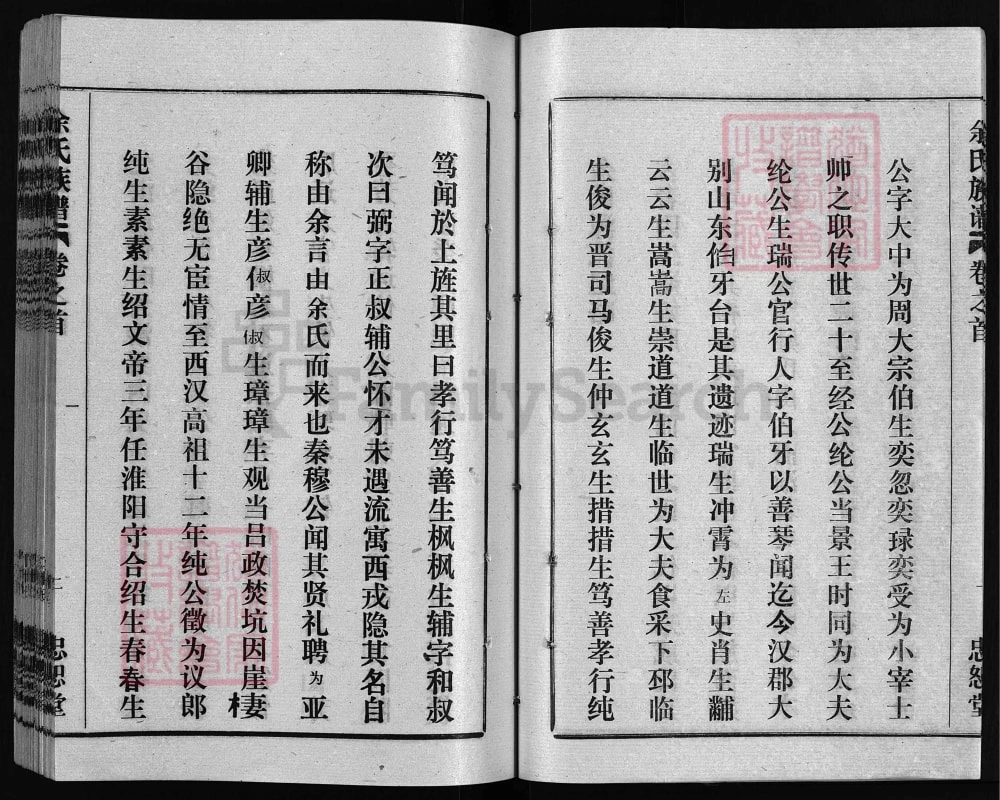 余氏族谱 卷之首
忠恕堂
公字大中为周大宗伯生奕忽奕琭奕受为小宰士
帅之职传世二十至经公纶公当景王时同为大夫
纶公生瑞公官行人字伯牙以善琴闻迄今汉郡大
别山东伯牙台是其遗迹瑞生冲霄为左史肖生黼
云云生蒿蒿生崇道道生临世为大夫食采下邳临
生俊为晋司马俊生仲玄玄生措措生笃善孝行纯
笃闻於上旌其里曰孝行笃善生枫枫生辅字和叔
次曰弼字正叔辅公怀才未遇流寓西戎隐其名自
称由余言由余氏而来也秦穆公闻其贤礼聘为亚
卿辅生彦俶彦俶生璋璋生观当吕政焚坑因崖棲
谷隐绝无宦情至西汉高祖十二年纯公徵为议郎
纯生素素生绍文帝三年任淮阳守合绍生春春生
余氏族譜 卷之首
一
忠恕堂
FamilySearch